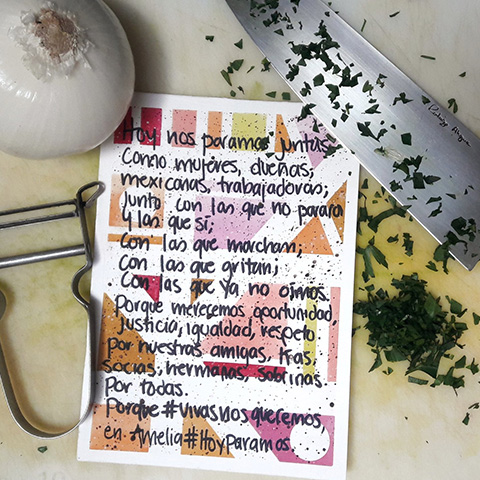 Hoy nos paramos juntas.
Como mujeres, dueñas,
mexicanas, trabajadoras;
Junto con las que no pararon
y las que sí;
con las que marchan;
Con las que gritan;
Con las que ya no oimos.
Porque merecemos oportunidad,
justicia, igualdad, respeto
por nuestras amigas, tías,
socias, hermanas, sobrinas.
Por todas.
Porque #VivasNosQueremos,
en Amelia #HoyParamos